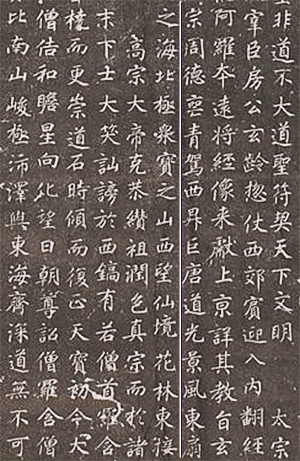 聖非道不大道聖符契天下文明 太宗
宰臣房公玄齡惣仗西郊賓迎入內翻經
阿羅夲遠將經像來獻上京詳其教旨玄
宗周德喪青駕西昇巨唐道光景風東扇
之海北極衆寶之山西望仙境花林東接
高宗大帝克恭纘祖潤色真宗而於諸
末下士大笑訕謗於西鎬有若僧首羅含
橈而更崇道石時傾而復正天寶初令大
僧佶和瞻星向化望日朝尊詔僧羅含僧
比南山峻極沛澤與東海齊深道無不可